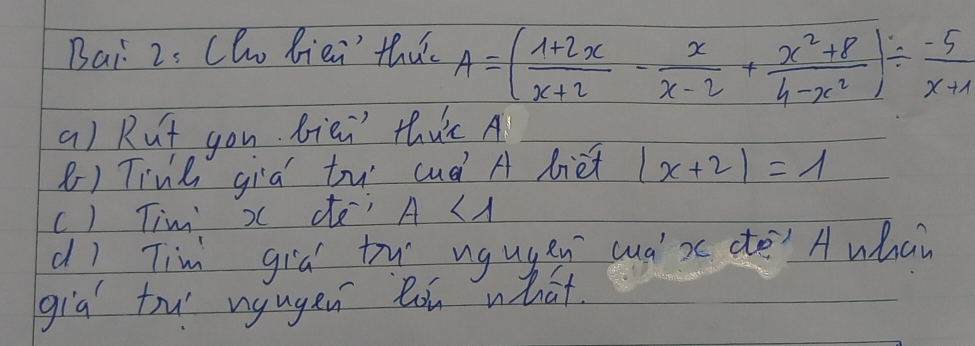 Bài 2: Cho biểu thức A = ( (1+2x)/(x+2) - x/(x-2) + (x²+8)/(4-x²) ) ÷ -5/(x+1
a) Rút gọn biểu thức A
b) Tính giá trị của A biết |x+2| = 1
c) Tìm x để A < 1
d) Tìm giá trị nguyên của x để A nhận
giá trị nguyên lớn nhất.